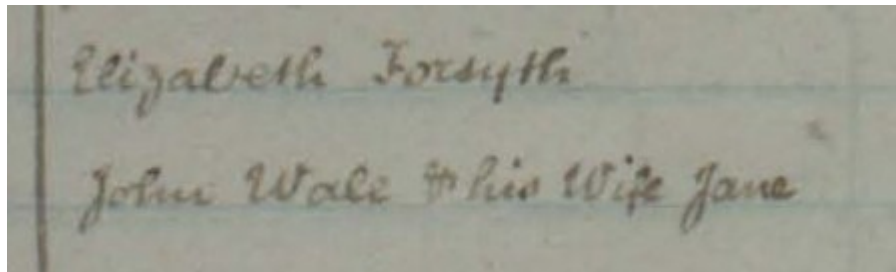 Elizabeth Forsyth
John Wale & his Wife Jane